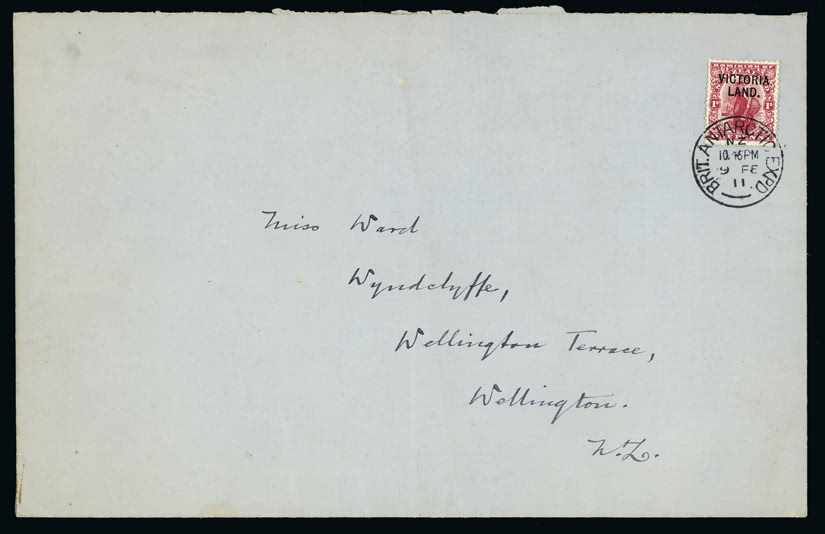 DOMINION OF
VICTORIA
LAND.
1D 1D
BRIT. ANTARCTIC EXPD
NZ
PM
9 FE
11.
Miss Ward
Wyndclyffe,
Wellington Terrace,
Wellington.
N.Z.